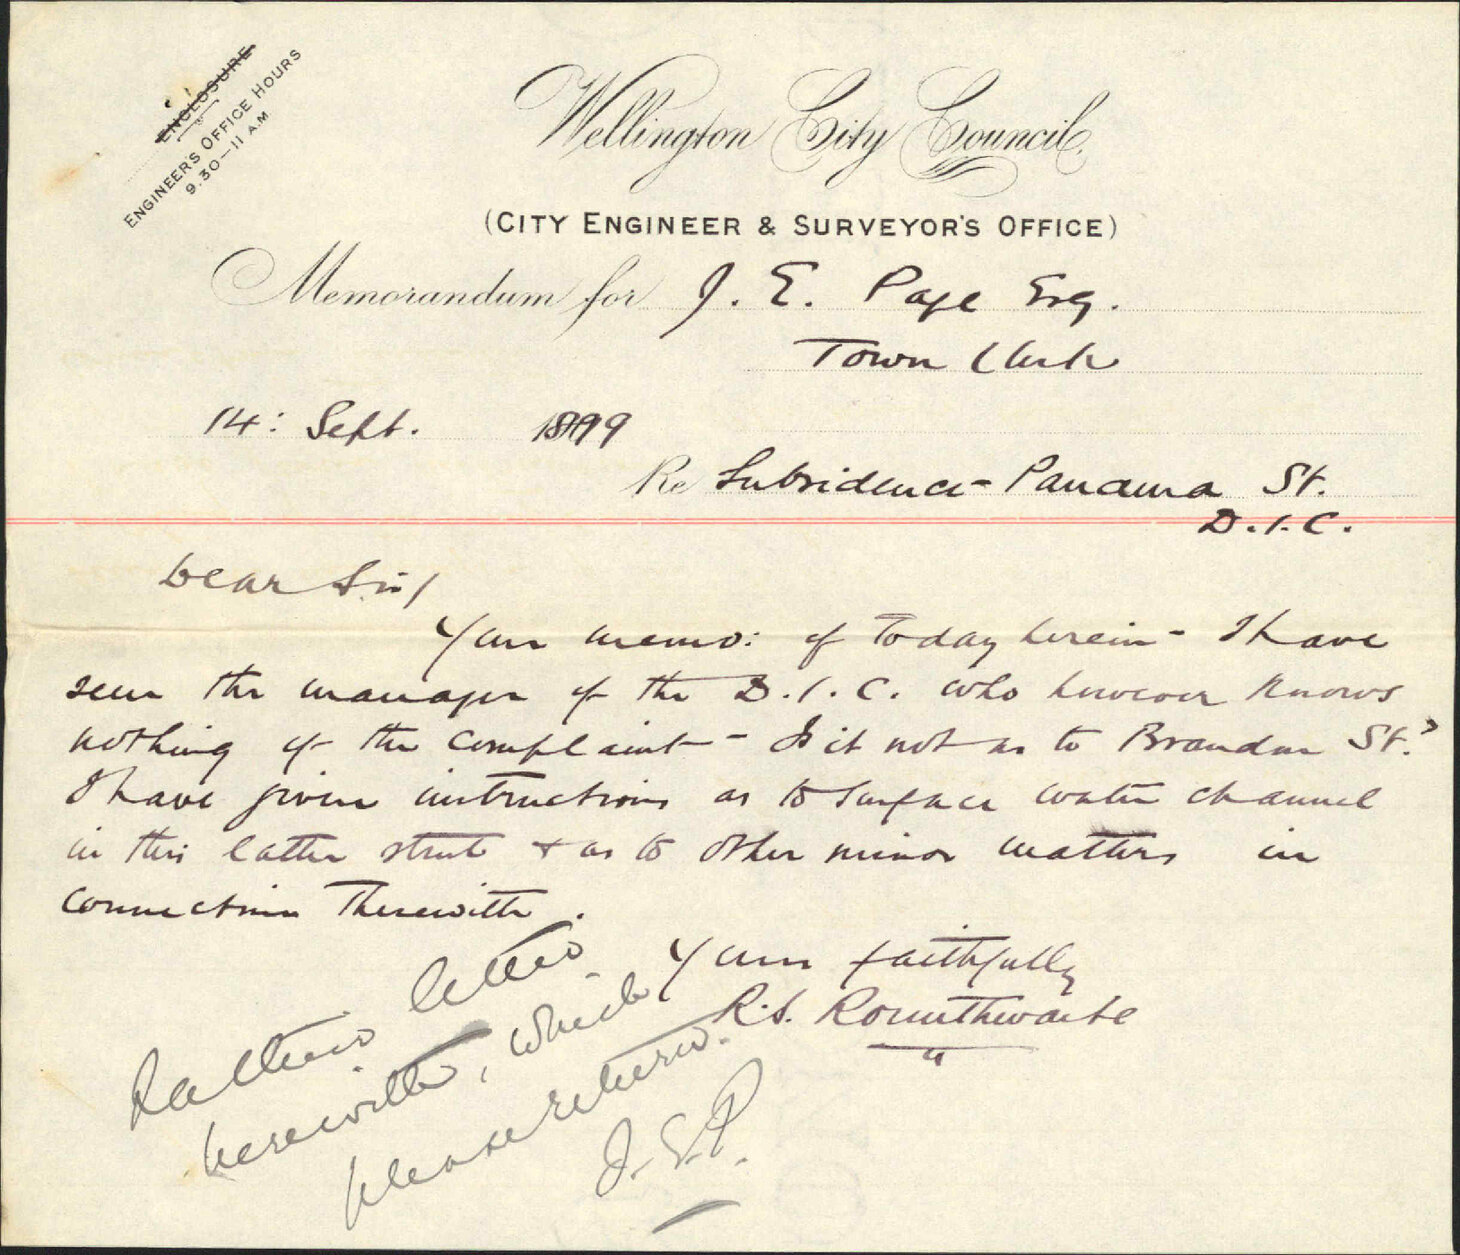 ENCLOSURE
ENGINEER'S OFFICE HOURS
9.30–11 A.M
Wellington City Council.
(CITY ENGINEER & SURVEYOR'S OFFICE)
Memorandum for J. E. Page Esq.
Town Clerk
14: Sept. 1899
Re Subsidence - Panama St.
D.I.C.
Dear Sir/
Your memo: of today herein - I have
seen the manager of the D.I.C. who however knows
nothing of the complaint - Is it not as to Brandon St.?
I have given instructions as to surface water channel
in this latter street & as to other minor matters in
connection therewith.
Yours faithfully
R.S. Rounthwaite
letter
herewith, which
please return.
J.E.P.